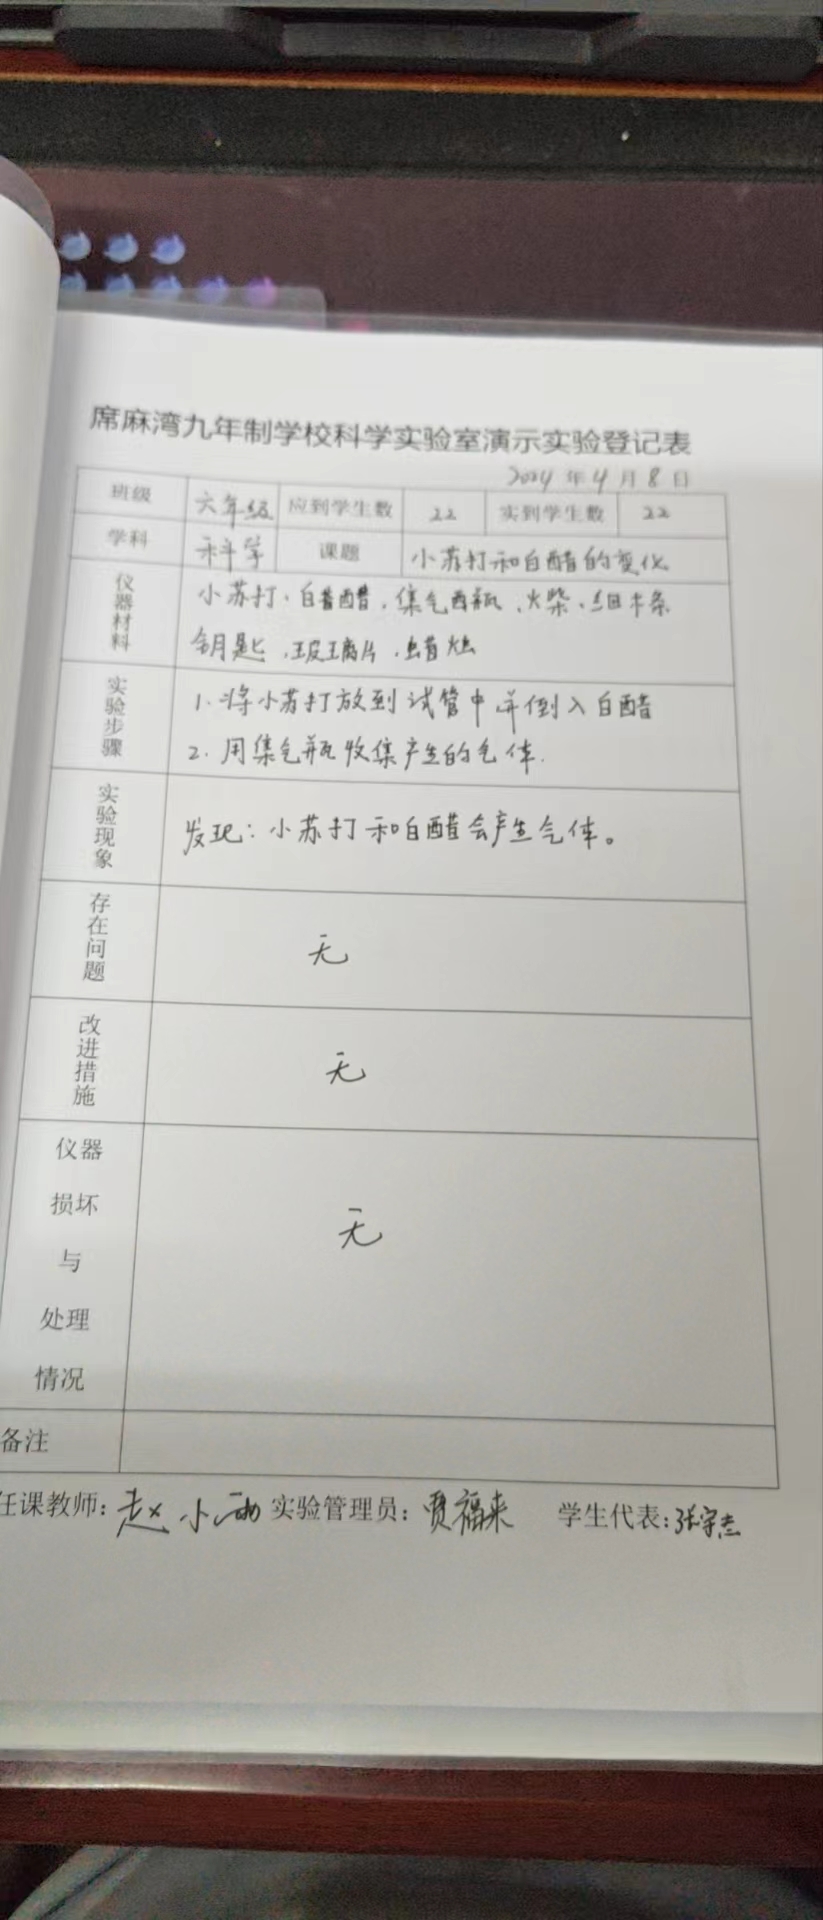 席麻湾九年制学校科学实验室演示实验登记表
2024 年 4 月 8 日
班级 六年级 应到学生数 22 实到学生数 22
学科 科学 课题 小苏打和白醋的变化
仪器材料 小苏打、白醋、集气瓶、火柴、细木条
钥匙、玻璃片、蜡烛
实验步骤 1. 将小苏打放到试管中并倒入白醋
2. 用集气瓶收集产生的气体.
实验现象 发现：小苏打和白醋会产生气体。
存在问题 无
改进措施 无
仪器
损坏
与 无
处理
情况
备注
任课教师：赵小雨 实验管理员：贾福来 学生代表：张宇杰